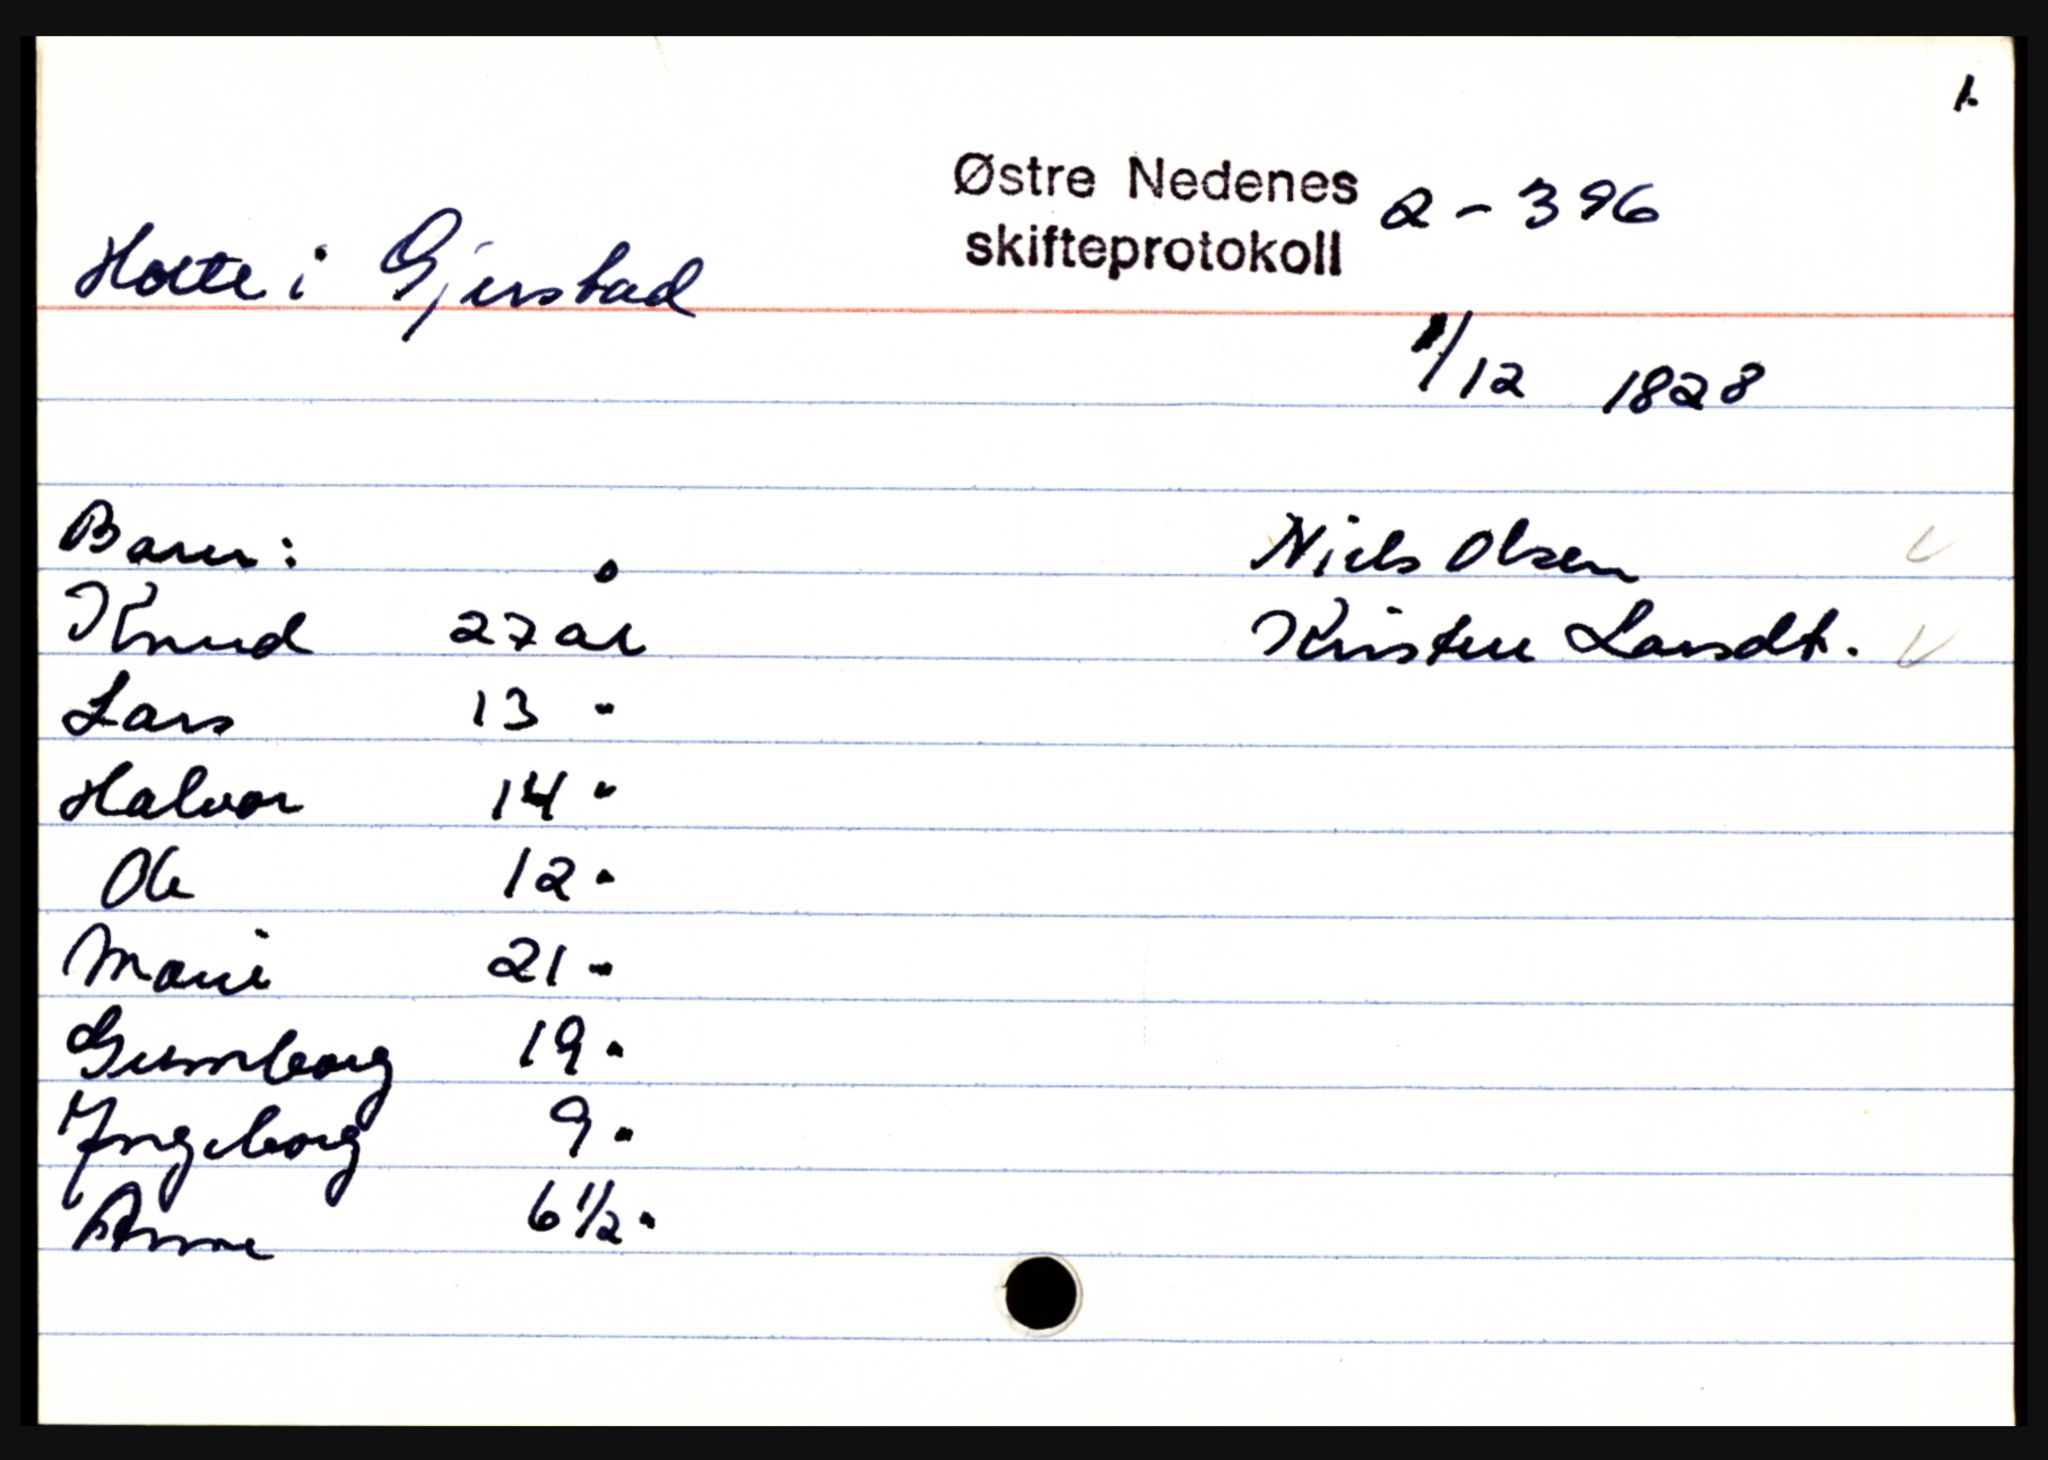 1.
Østre Nedenes 2-396
skifteprotokoll
Holte i Gjerstad
1/12 1828
Barn:
Niels Olsen
Knud 27 år
Kristen Larsdt.
Lars 13 "
Halvor 14 "
Ole 12 "
Marie 21 "
Gunborg 19 "
Ingeborg 9 "
Anne 6 1/2 "